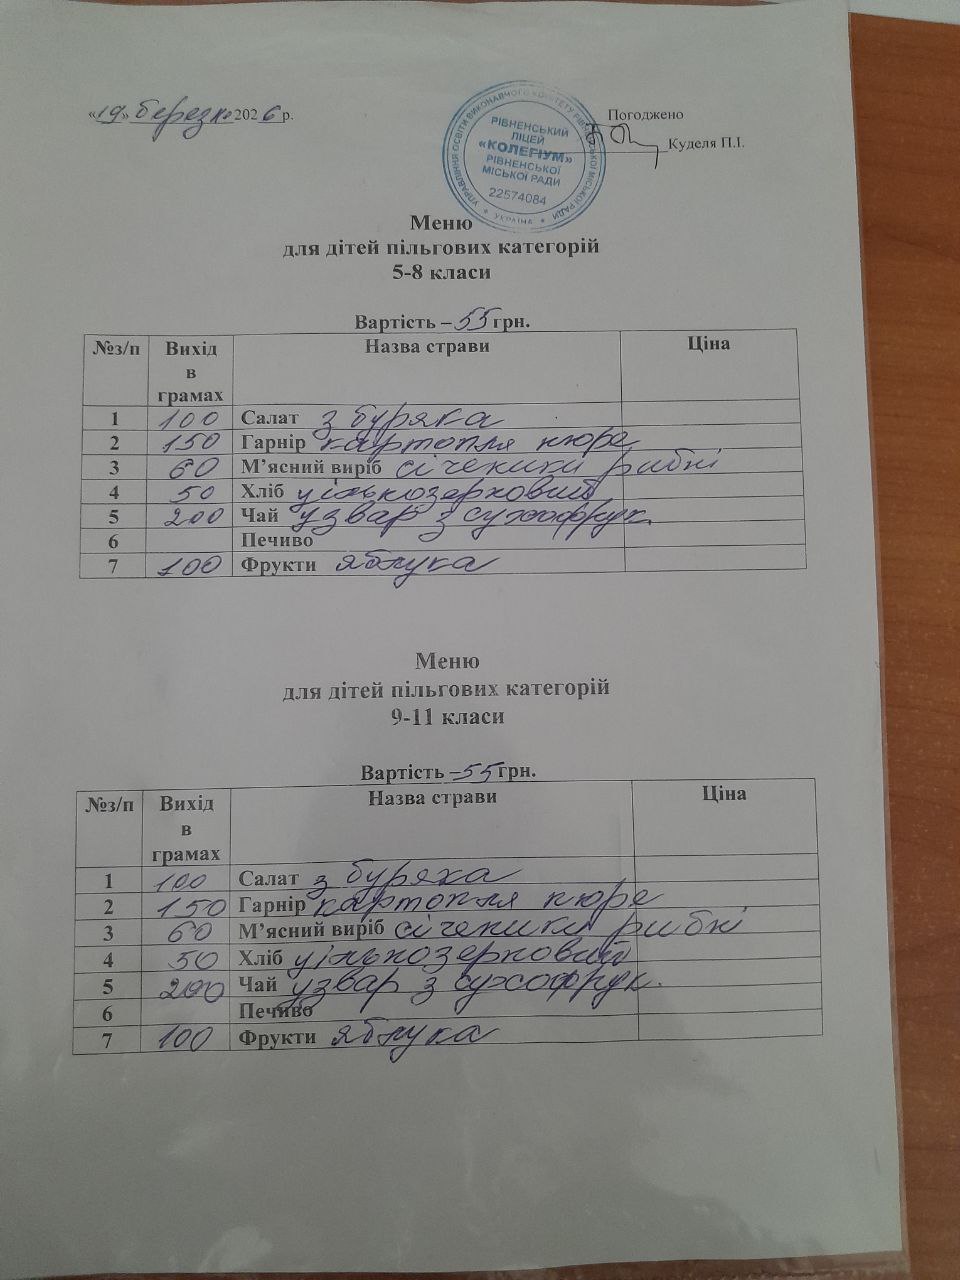 «19» березня 2026 р.
Погоджено
Куделя П.І.
УПРАВЛІННЯ ОСВІТИ ВИКОНАВЧОГО КОМІТЕТУ РІВНЕНСЬКОЇ МІСЬКОЇ РАДИ
* УКРАЇНА *
РІВНЕНСЬКИЙ
ЛІЦЕЙ
«КОЛЕГІУМ»
РІВНЕНСЬКОЇ
МІСЬКОЇ РАДИ
22574084
Меню
для дітей пільгових категорій
5-8 класи
Вартість – 55 грн.
№з/п Вихід в грамах Назва страви Ціна
1 100 Салат з буряка
2 150 Гарнір картопля пюре
3 60 М’ясний виріб січеники рибні
4 50 Хліб цільнозерновий
5 200 Чай узвар з сухофрук.
6 Печиво
7 100 Фрукти яблука
Меню
для дітей пільгових категорій
9-11 класи
Вартість – 55 грн.
№з/п Вихід в грамах Назва страви Ціна
1 100 Салат з буряка
2 150 Гарнір картопля пюре
3 60 М’ясний виріб січеники рибні
4 50 Хліб цільнозерновий
5 200 Чай узвар з сухофрук.
6 Печиво
7 100 Фрукти яблука